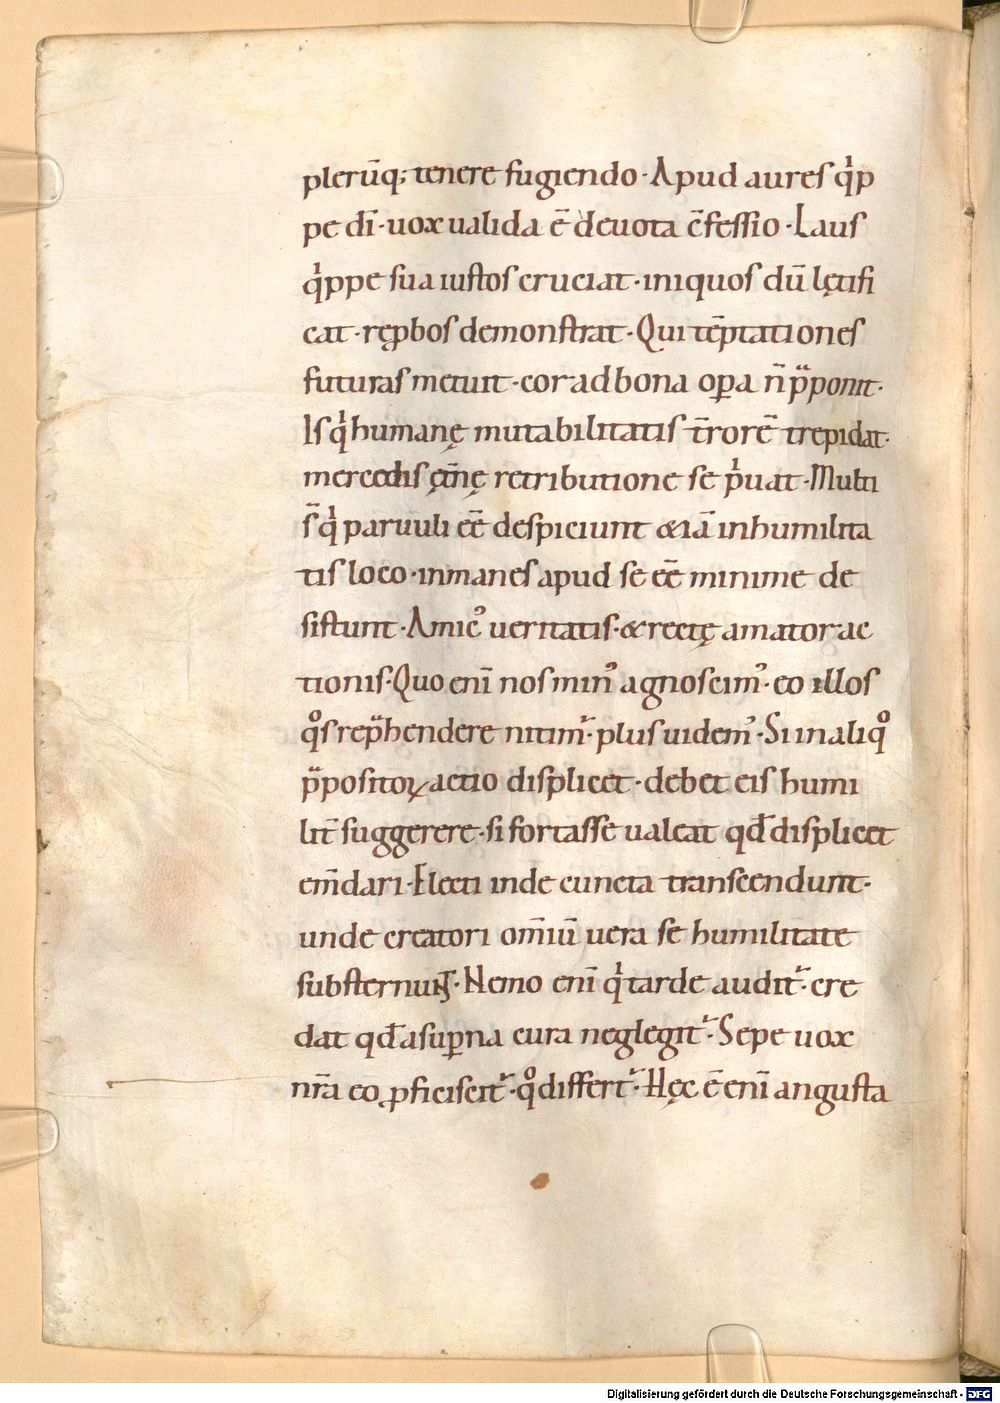 plerūq; tenere fugiendo· Apud aures qͥp
pe dī· uox ualida ē deuota c̄fessio· Laus
qͥppe sua iustos cruciat· iniquos dū lętifi
cat· rępbos demonstrat· Qui tēptationes
futuras metuit· cor ad bona oꝑa n̄ p̈ponit·
Is qͥ humanę mutabilitatis t̄rorē trepidat·
mercedis ęt̄nę retributione se pͥuat· Multi
s̄ qͥ paruuli eē despiciunt & iā in humilita
tis loco· inmanes apud se eē minime de
sistunt· Amicꝰ ueritatis· & rectę amator ac
tionis· Quo enī nos minꝰ agnoscimꝰ· eo illos
qͦs rep̈hendere nitimr̄· plus uidemꝰ· Si in aliqͦ
p̈positoꝝ actio displicet· debet eis humi
lit̄ suggerere· si fortasse ualeat qđ displicet
em̄dari· Electi inde cuncta transcendunt·
unde creatori om̄iū uera se humilitate
substernunt· Nemo enī qͥ tarde auditr̄· cre
dat qđ a suꝑna cura neglegitr̄· Sepe uox
nr̄a eo ꝓficiscitr̄· qͦ differtr̄· Hęc ē enī angusta
Digitalisierung gefördert durch die Deutsche Forschungsgemeinschaft - DFG